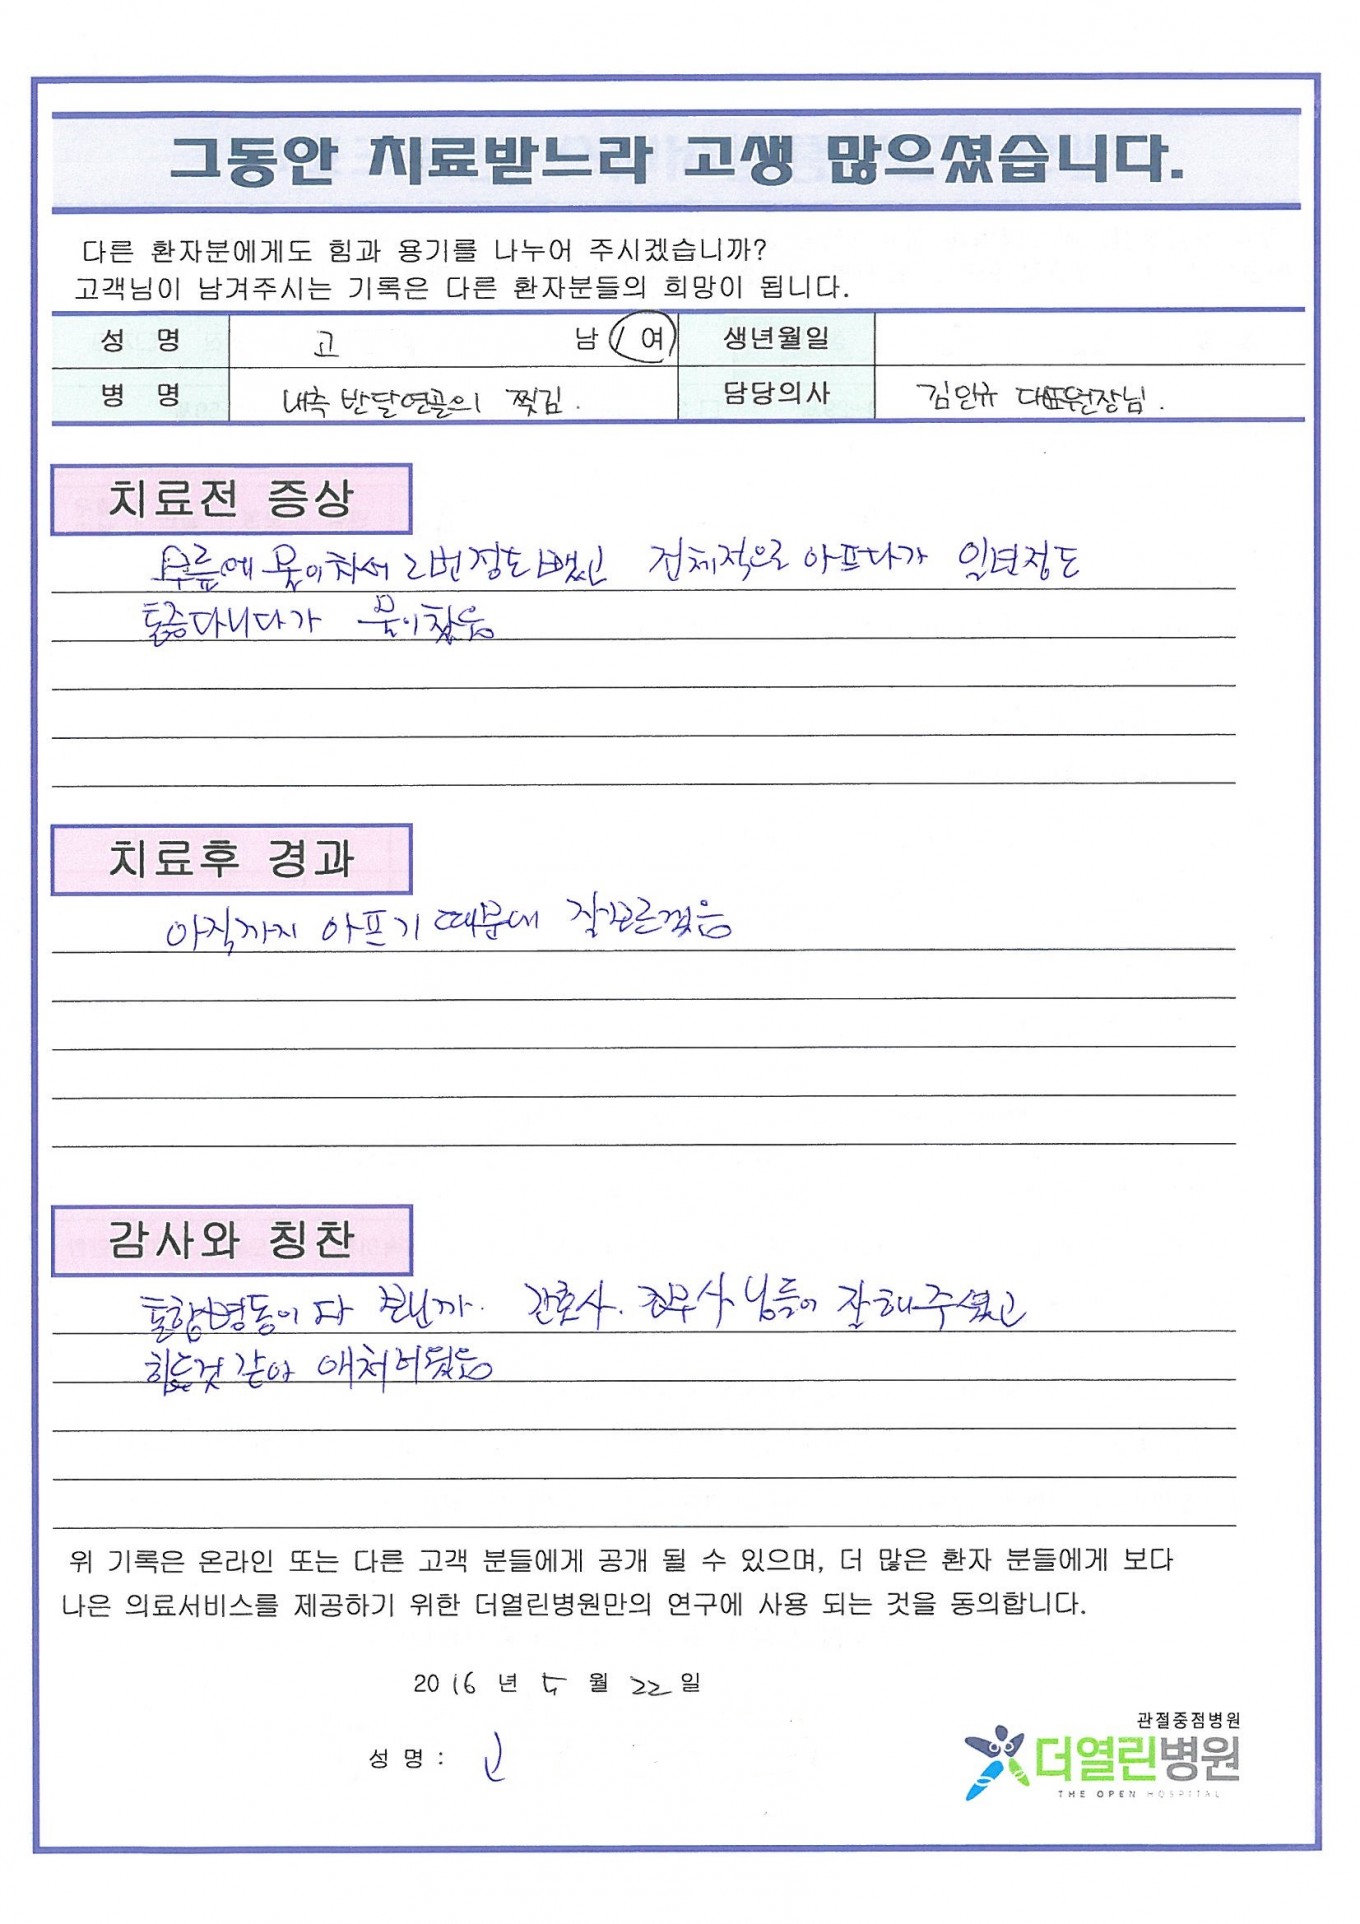 그동안 치료받느라 고생 많으셨습니다.
다른 환자분에게도 힘과 용기를 나누어 주시겠습니까?
고객님이 남겨주시는 기록은 다른 환자분들의 희망이 됩니다.
성 명 고 남 / 여 생년월일
병 명 내측 반달연골의 찢김. 담당의사 김안규 대표원장님.
치료전 증상
무릎에 물이차서 2번정도 뺐고 전체적으로 아프다가 일년정도
통증다니다가 물이찼음
치료후 경과
아직까지 아프기 때문에 잘모르겠음
감사와 칭찬
통합병동이다 보닌까. 간호사. 님들이 잘해주셨고
힘든것 같아
위 기록은 온라인 또는 다른 고객 분들에게 공개 될 수 있으며, 더 많은 환자 분들에게 보다
나은 의료서비스를 제공하기 위한 더열린병원만의 연구에 사용 되는 것을 동의합니다.
2016 년 5 월 22 일
성 명 : 고
관절중점병원
더열린병원
THE OPEN HOSPITAL